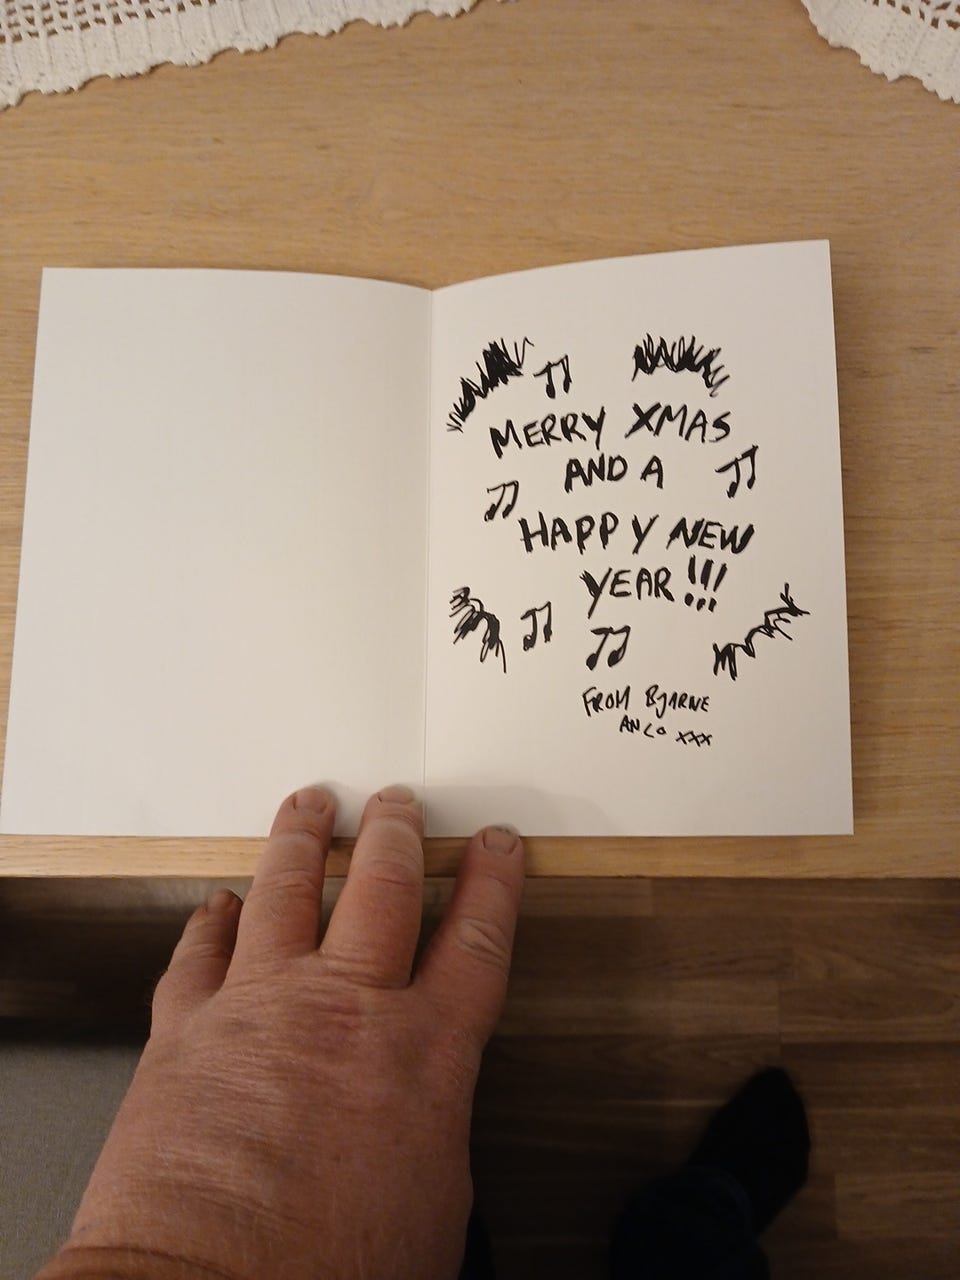 MERRY XMAS
AND A
HAPPY NEW
YEAR!!!
FROM BJARNE
AN CO XXX